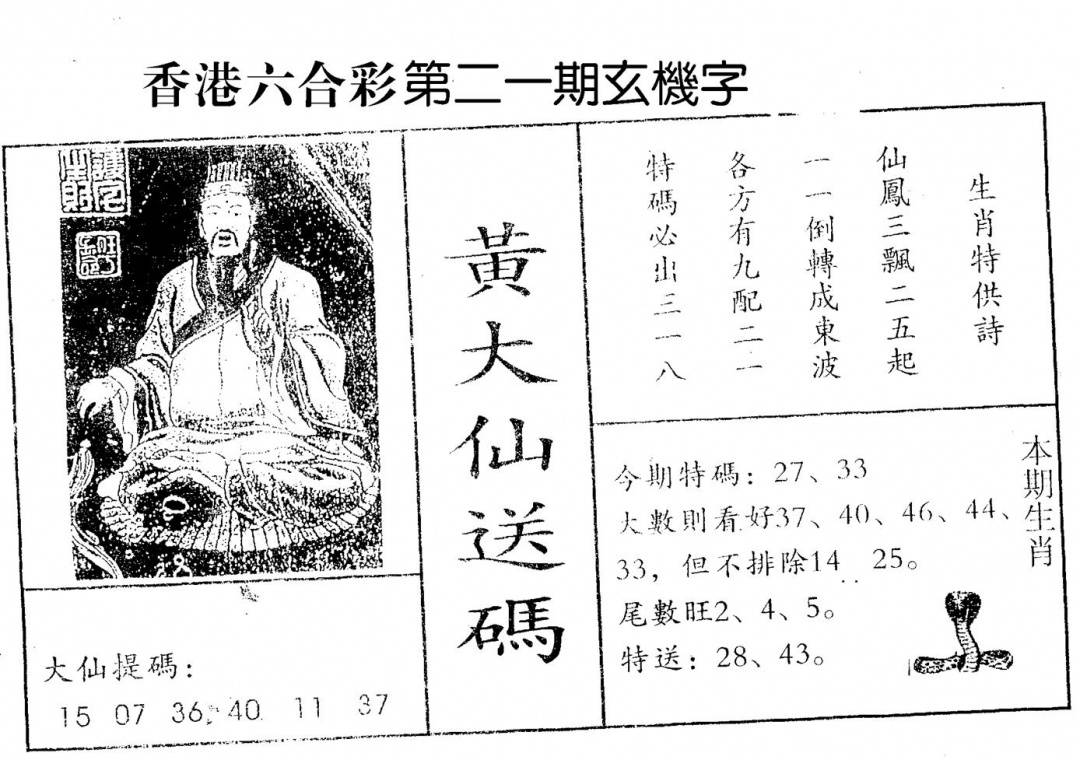 香港六合彩第二一期玄機字
黃大仙送碼
生肖特供詩
仙鳳三飄二五起
一一倒轉成東波
各方有九配二一
特碼必出三一八
本期生肖
今期特碼：27、33
大數則看好37、40、46、44、
33，但不排除14 25。
尾數旺2、4、5。
特送：28、43。
大仙提碼：
15 07 36 40 11 37